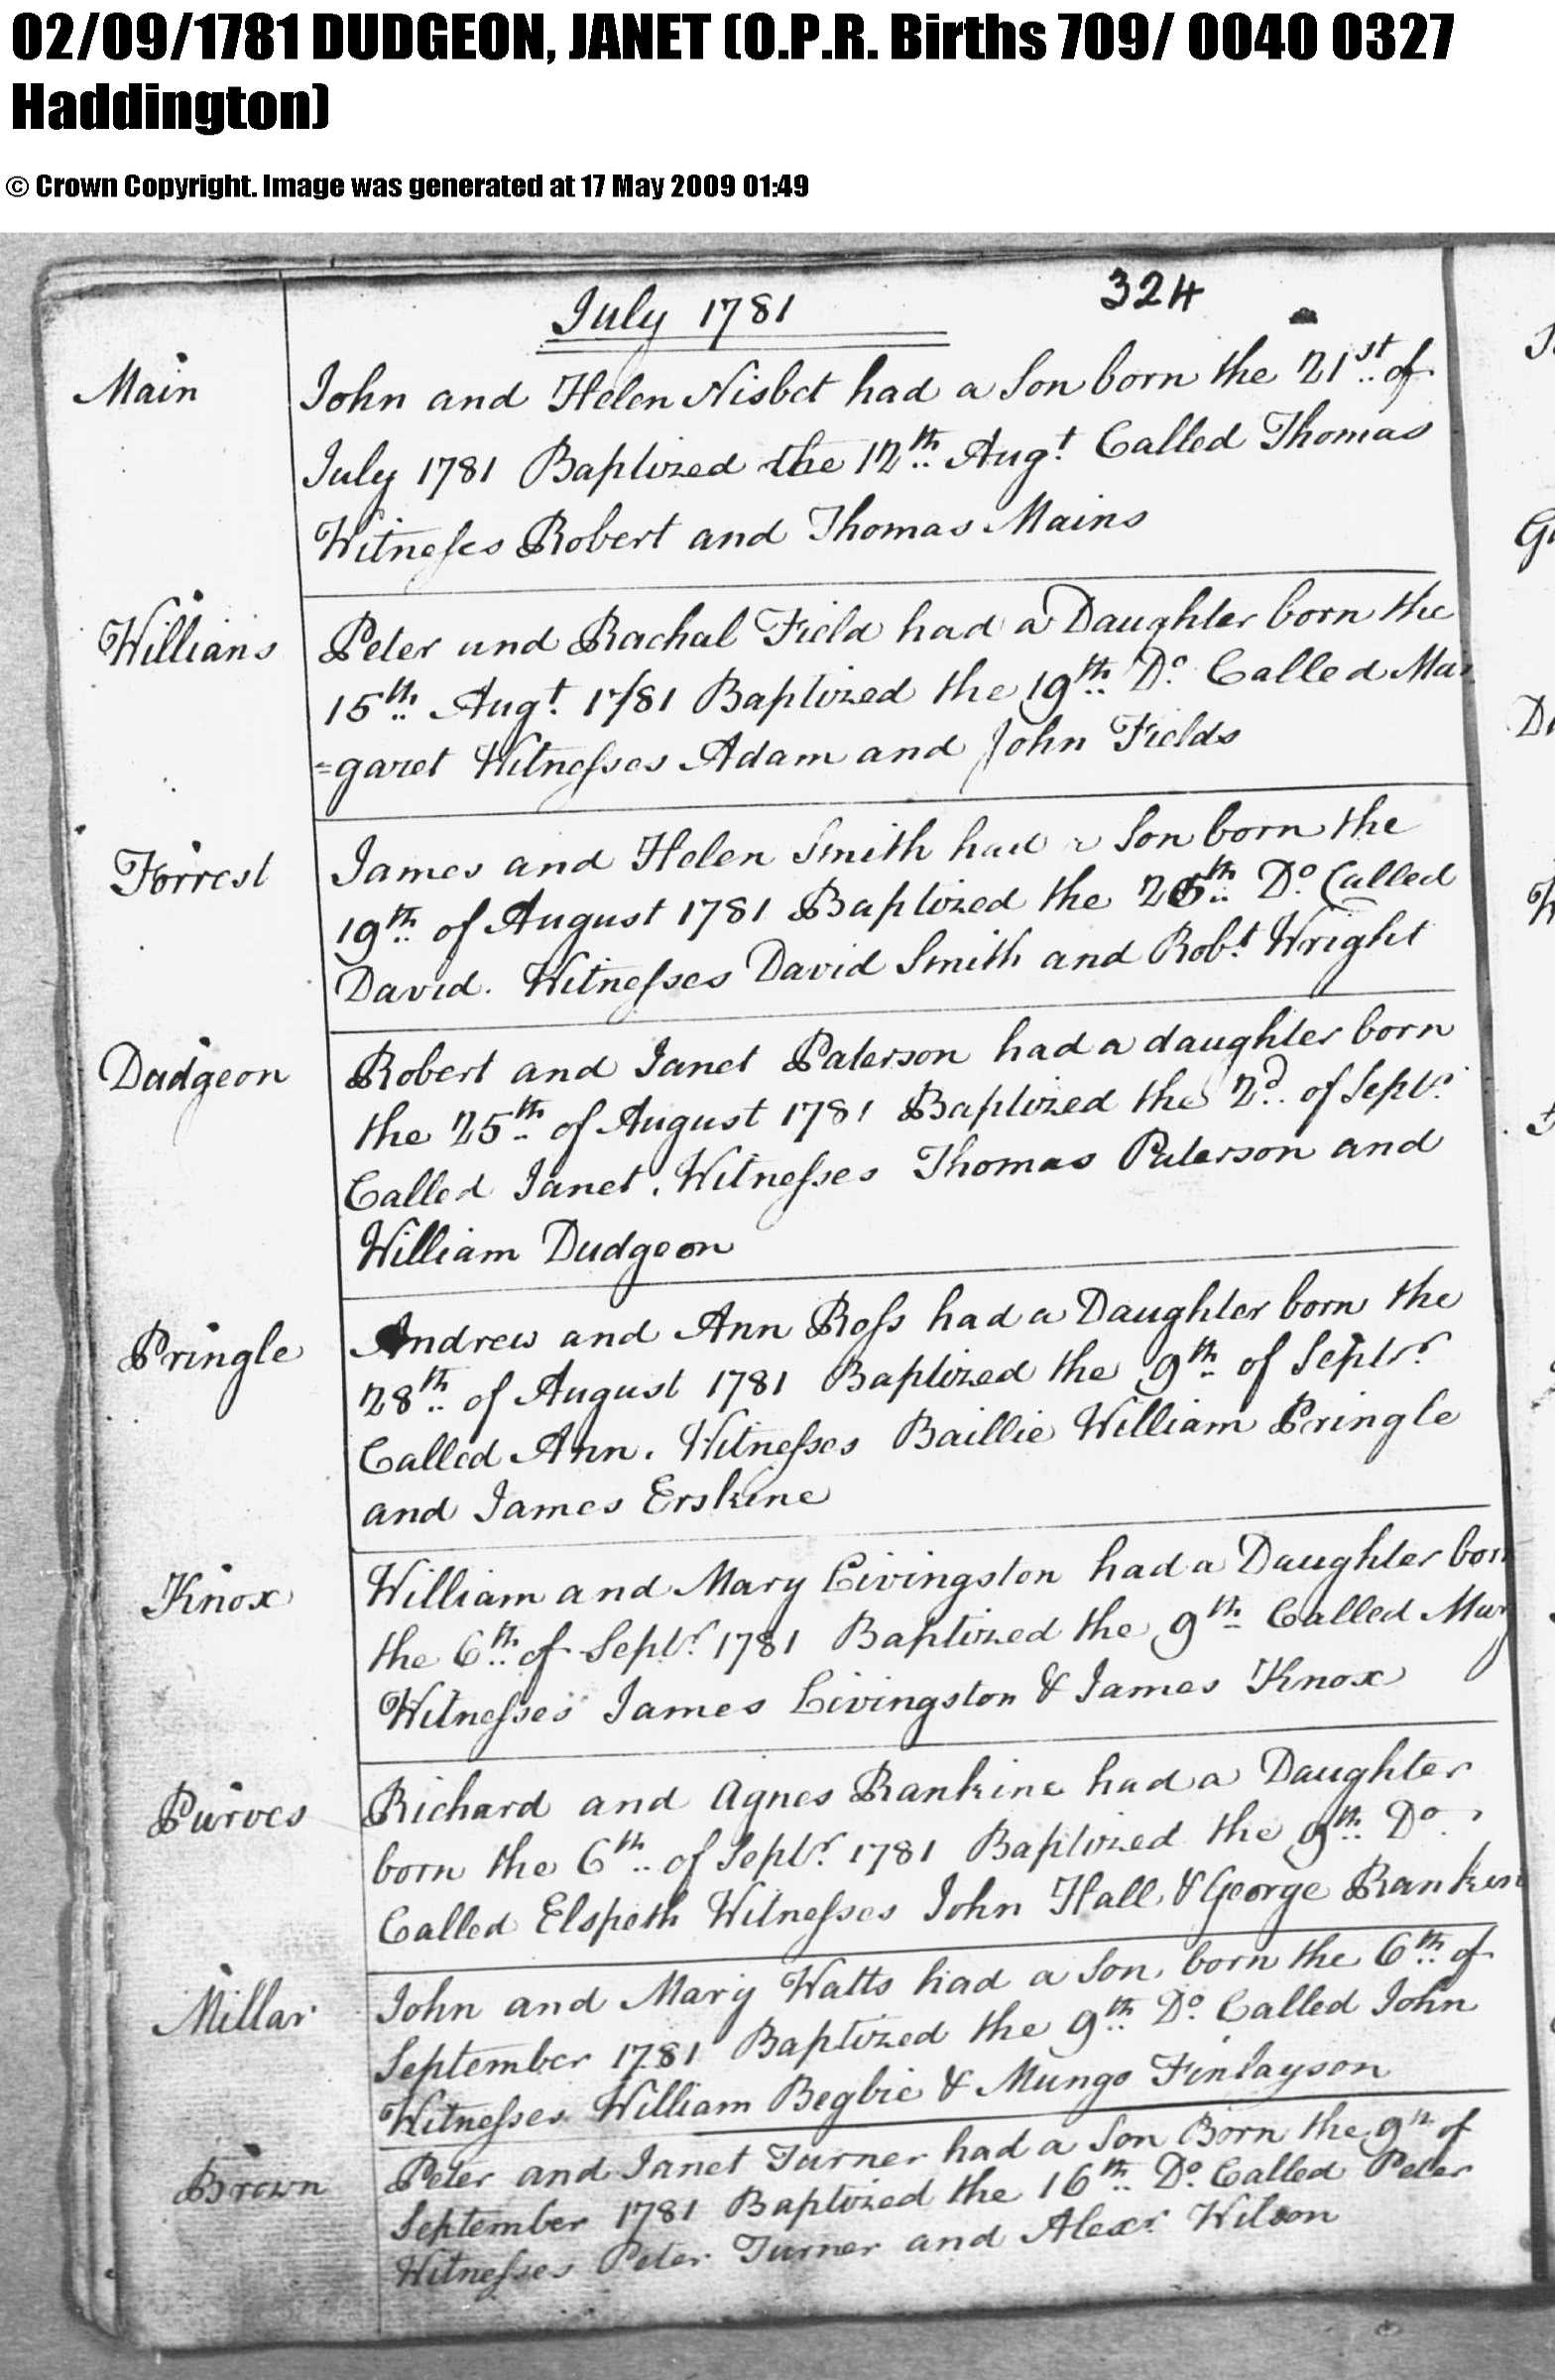 02/09/1781 DUDGEON, JANET (O.P.R. Births 709/ 0040 0327
Haddington)
© Crown Copyright. Image was generated at 17 May 2009 01:49
July 1781
324
Main
John and Helen Nisbet had a Son born the 21st of
July 1781 Baptized the 12th Augt Called Thomas
Witnesses Robert and Thomas Mains
Willians
Peter and Rachal Field had a Daughter born the
15th Augt 1781 Baptized the 19th Do Called Mar
=garet Witnesses Adam and John Fields
Forrest
James and Helen Smith had a Son born the
19th of August 1781 Baptized the 26th Do Called
David. Witnesses David Smith and Robt Wright
Dudgeon
Robert and Janet Paterson had a daughter born
the 25th of August 1781 Baptized the 2d of Septr
Called Janet. Witnesses Thomas Paterson and
William Dudgeon
Pringle
Andrew and Ann Ross had a Daughter born the
28th of August 1781 Baptized the 9th of Septr
Called Ann. Witnesses Baillie William Pringle
and James Erskine
Knox
William and Mary Livingston had a Daughter born
the 6th of Septr 1781 Baptized the 9th Called Mary
Witnesses James Livingston & James Knox
Purves
Richard and Agnes Rankine had a Daughter
born the 6th of Septr 1781 Baptized the 9th Do.
Called Elspeth Witnesses John Hall & George Ranken
Millar
John and Mary Watts had a Son born the 6th of
September 1781 Baptized the 9th Do Called John
Witnesses William Begbie & Mungo Finlayson
Brown
Peter and Janet Turner had a Son Born the 9th of
September 1781 Baptized the 16th Do Called Peter
Witnesses Peter Turner and Alexr Wilson